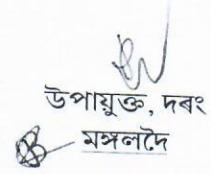 উপায়ুক্ত, দৰং
মঙ্গলদৈ